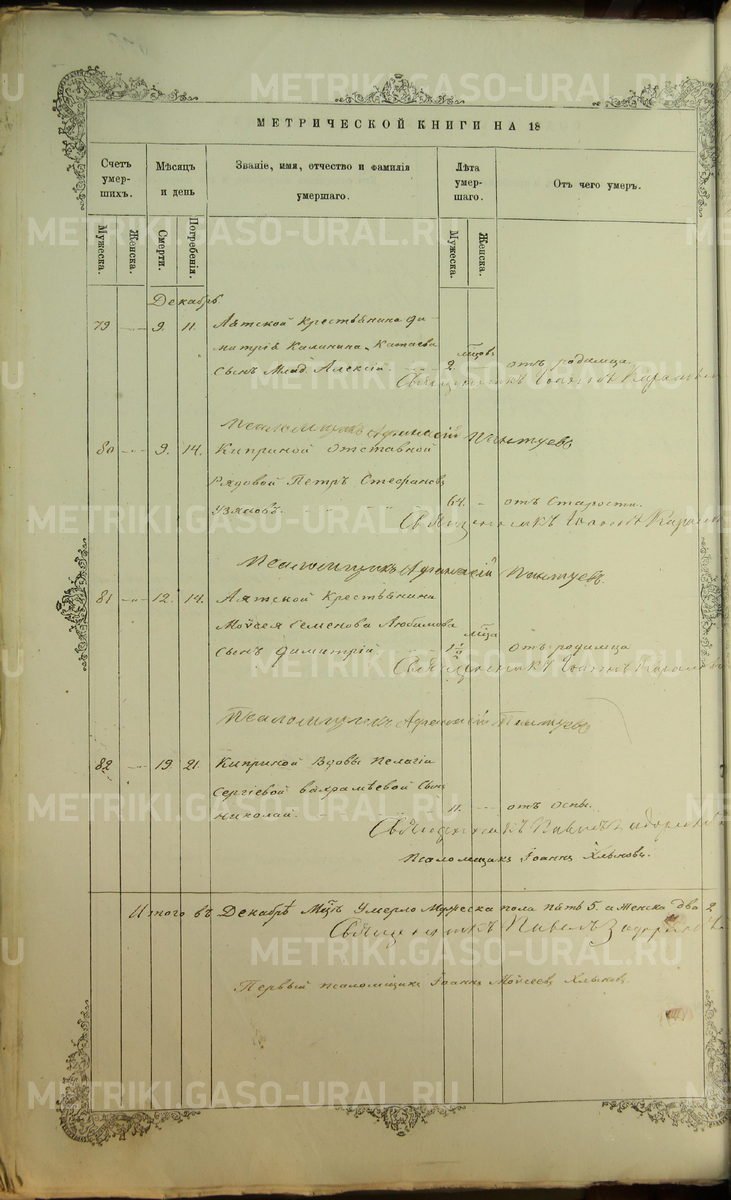 METRIKI.GASO-URAL.RU
МЕТРИЧЕСКОЙ КНИГИ НА 18
Счетъ умер-шихъ.
Мѣсяцъ и день
Званіе, имя, отчество и фамилія умершаго.
Лѣта умер-шаго.
Отъ чего умеръ.
Мужеска.
Женска.
Смерти.
Погребенія.
Мужеска.
Женска.
Декабрь
79 9. 11. Аятской крестьянина Ди-
митрія Калинина Катаева мцовъ
сынъ Млад. Алексій. 2. отъ родимца
Священникъ Іоаннъ
Псаломщикъ Афанасій Пинтуевъ
80 9. 14. Киприной отставной
Рядовой Петръ Стефановъ
64. отъ Старости.
Священникъ Іоаннъ
Псаломщикъ Афанасій Пинтуевъ
81 12. 14. Аятской крестьянина
Моѵсея Семенова Любимова мца
сынъ Димитрій 1½ отъ родимца
Священникъ Іоаннъ
Псаломщикъ Афанасій Пинтуевъ
82 19 21. Киприной Вдовы Пелагіи
Сергіевой Варламѣевой Сынъ
Николай. 11. отъ оспы.
Священникъ Павелъ
Псаломщикъ Іоаннъ Хлыновъ.
Итого въ Декабрѣ Мцѣ Умерло Мужеска пола пять 5. а Женска два 2
Священникъ Павелъ
Первый псаломщикъ Іоаннъ Моѵсеевъ Хлыновъ